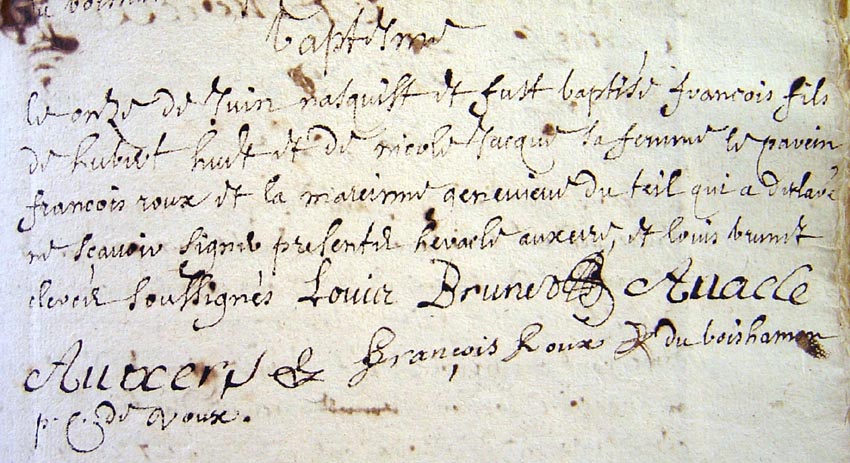 du boisham
baptesme
le onze de Juin nasquist et fust baptisé françois fils
de hubert huet et de nicole Jacque sa femme le parein
françois roux et la mareinne genevieve du teil qui a déclaré
ne sçavoir signer presents heracle auxerre, et louis brunet
clercs soussignés Louis Brunet Auacle
Auxerre françois Roux du boishamon
p. C. de Voux.